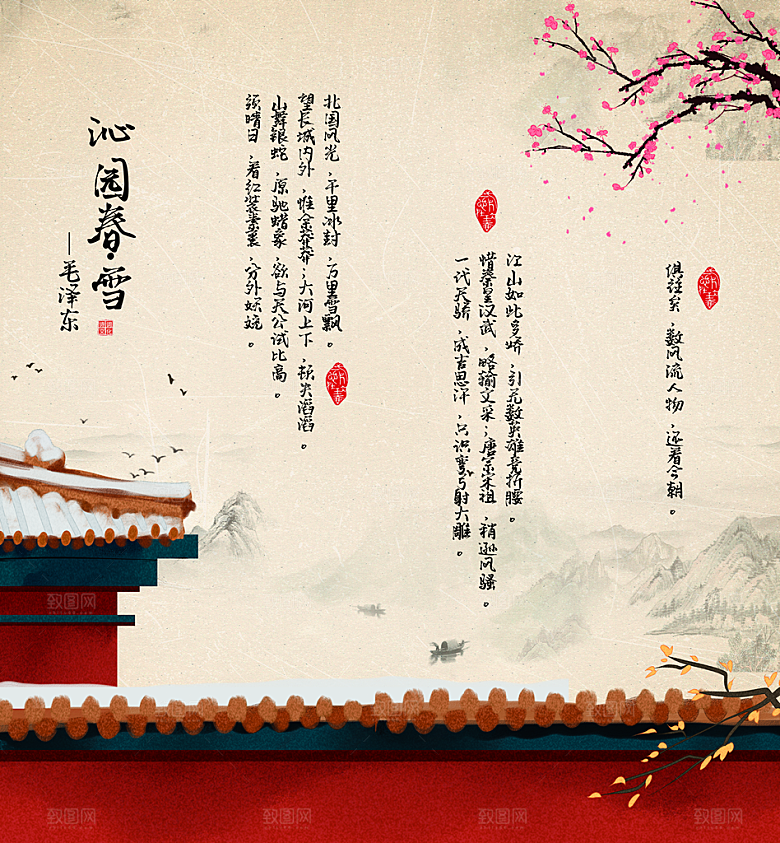 沁园春·雪
—毛泽东
北国风光，千里冰封，万里雪飘。
望长城内外，惟余莽莽；大河上下，顿失滔滔。
山舞银蛇，原驰蜡象，欲与天公试比高。
须晴日，看红装素裹，分外妖娆。
江山如此多娇，引无数英雄竞折腰。
惜秦皇汉武，略输文采；唐宗宋祖，稍逊风骚。
一代天骄，成吉思汗，只识弯弓射大雕。
俱往矣，数风流人物，还看今朝。
致图网
致图网
致图网
致图网
致图网
致图网
致图网